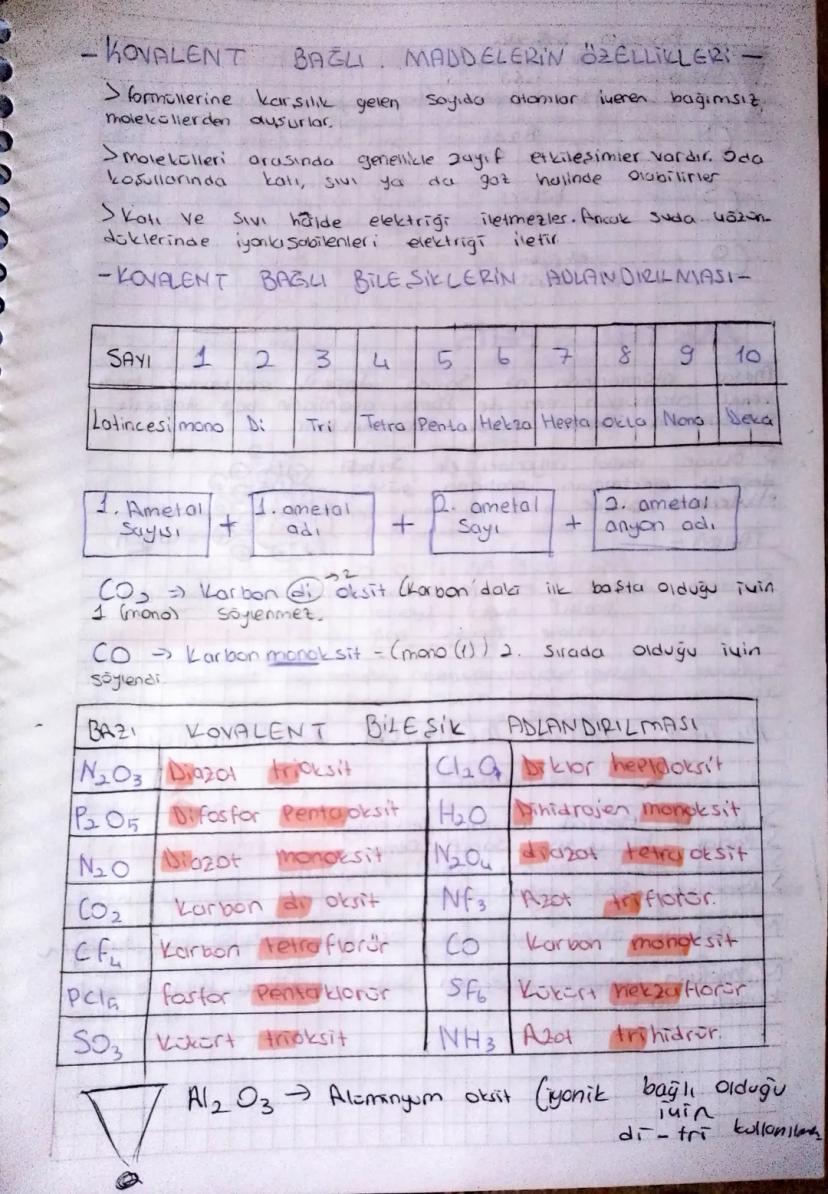 - KOVALENT BAĞLI MADDELERİN ÖZELLİKLERİ -
> formüllerine karşılık gelen sayıda atomlar içeren bağımsız
moleküllerden oluşurlar.
> molekülleri arasında genellikle zayıf etkileşimler vardır. Oda
koşullarında katı, sıvı ya da gaz halinde olabilirler
> Katı ve sıvı hâlde elektriği iletmezler. Ancak suda çözün-
düklerinde iyonlaşabilenleri elektriği iletir
- KOVALENT BAĞLI BİLEŞİKLERİN ADLANDIRILMASI -
SAYI 1 2 3 4 5 6 7 8 9 10
Latincesi mono Di Tri Tetra Penta Hekza Hepta okta Nona Deka
1. Ametal sayısı + 1. ametal adı + 2. ametal sayı + 2. ametal anyon adı
CO2 => Karbon di →2 oksit (karbon'daki ilk başta olduğu için
1 (mono) söylenmez.
CO → Karbon monoksit - (mono (1)) 2. sırada olduğu için
söylendi
BAZI KOVALENT BİLEŞİK ADLANDIRILMASI
N2O3 Diazot trioksit Cl2O7 Diklor heptaoksit
P2O5 Difosfor pentaoksit H2O Dihidrojen monoksit
N2O Diazot monoksit N2O4 diazot tetra oksit
CO2 Karbon di oksit Nf3 Azot triflorür.
CF4 Karbon tetraflorür CO Karbon monoksit
PCl5 fosfor pentaklorür SF6 Kükürt hekzaflorür
SO3 Kükürt trioksit NH3 Azot trihidrür.
Al2O3 → Alüminyum oksit (iyonik bağlı olduğu
için
di - tri kullanılmaz